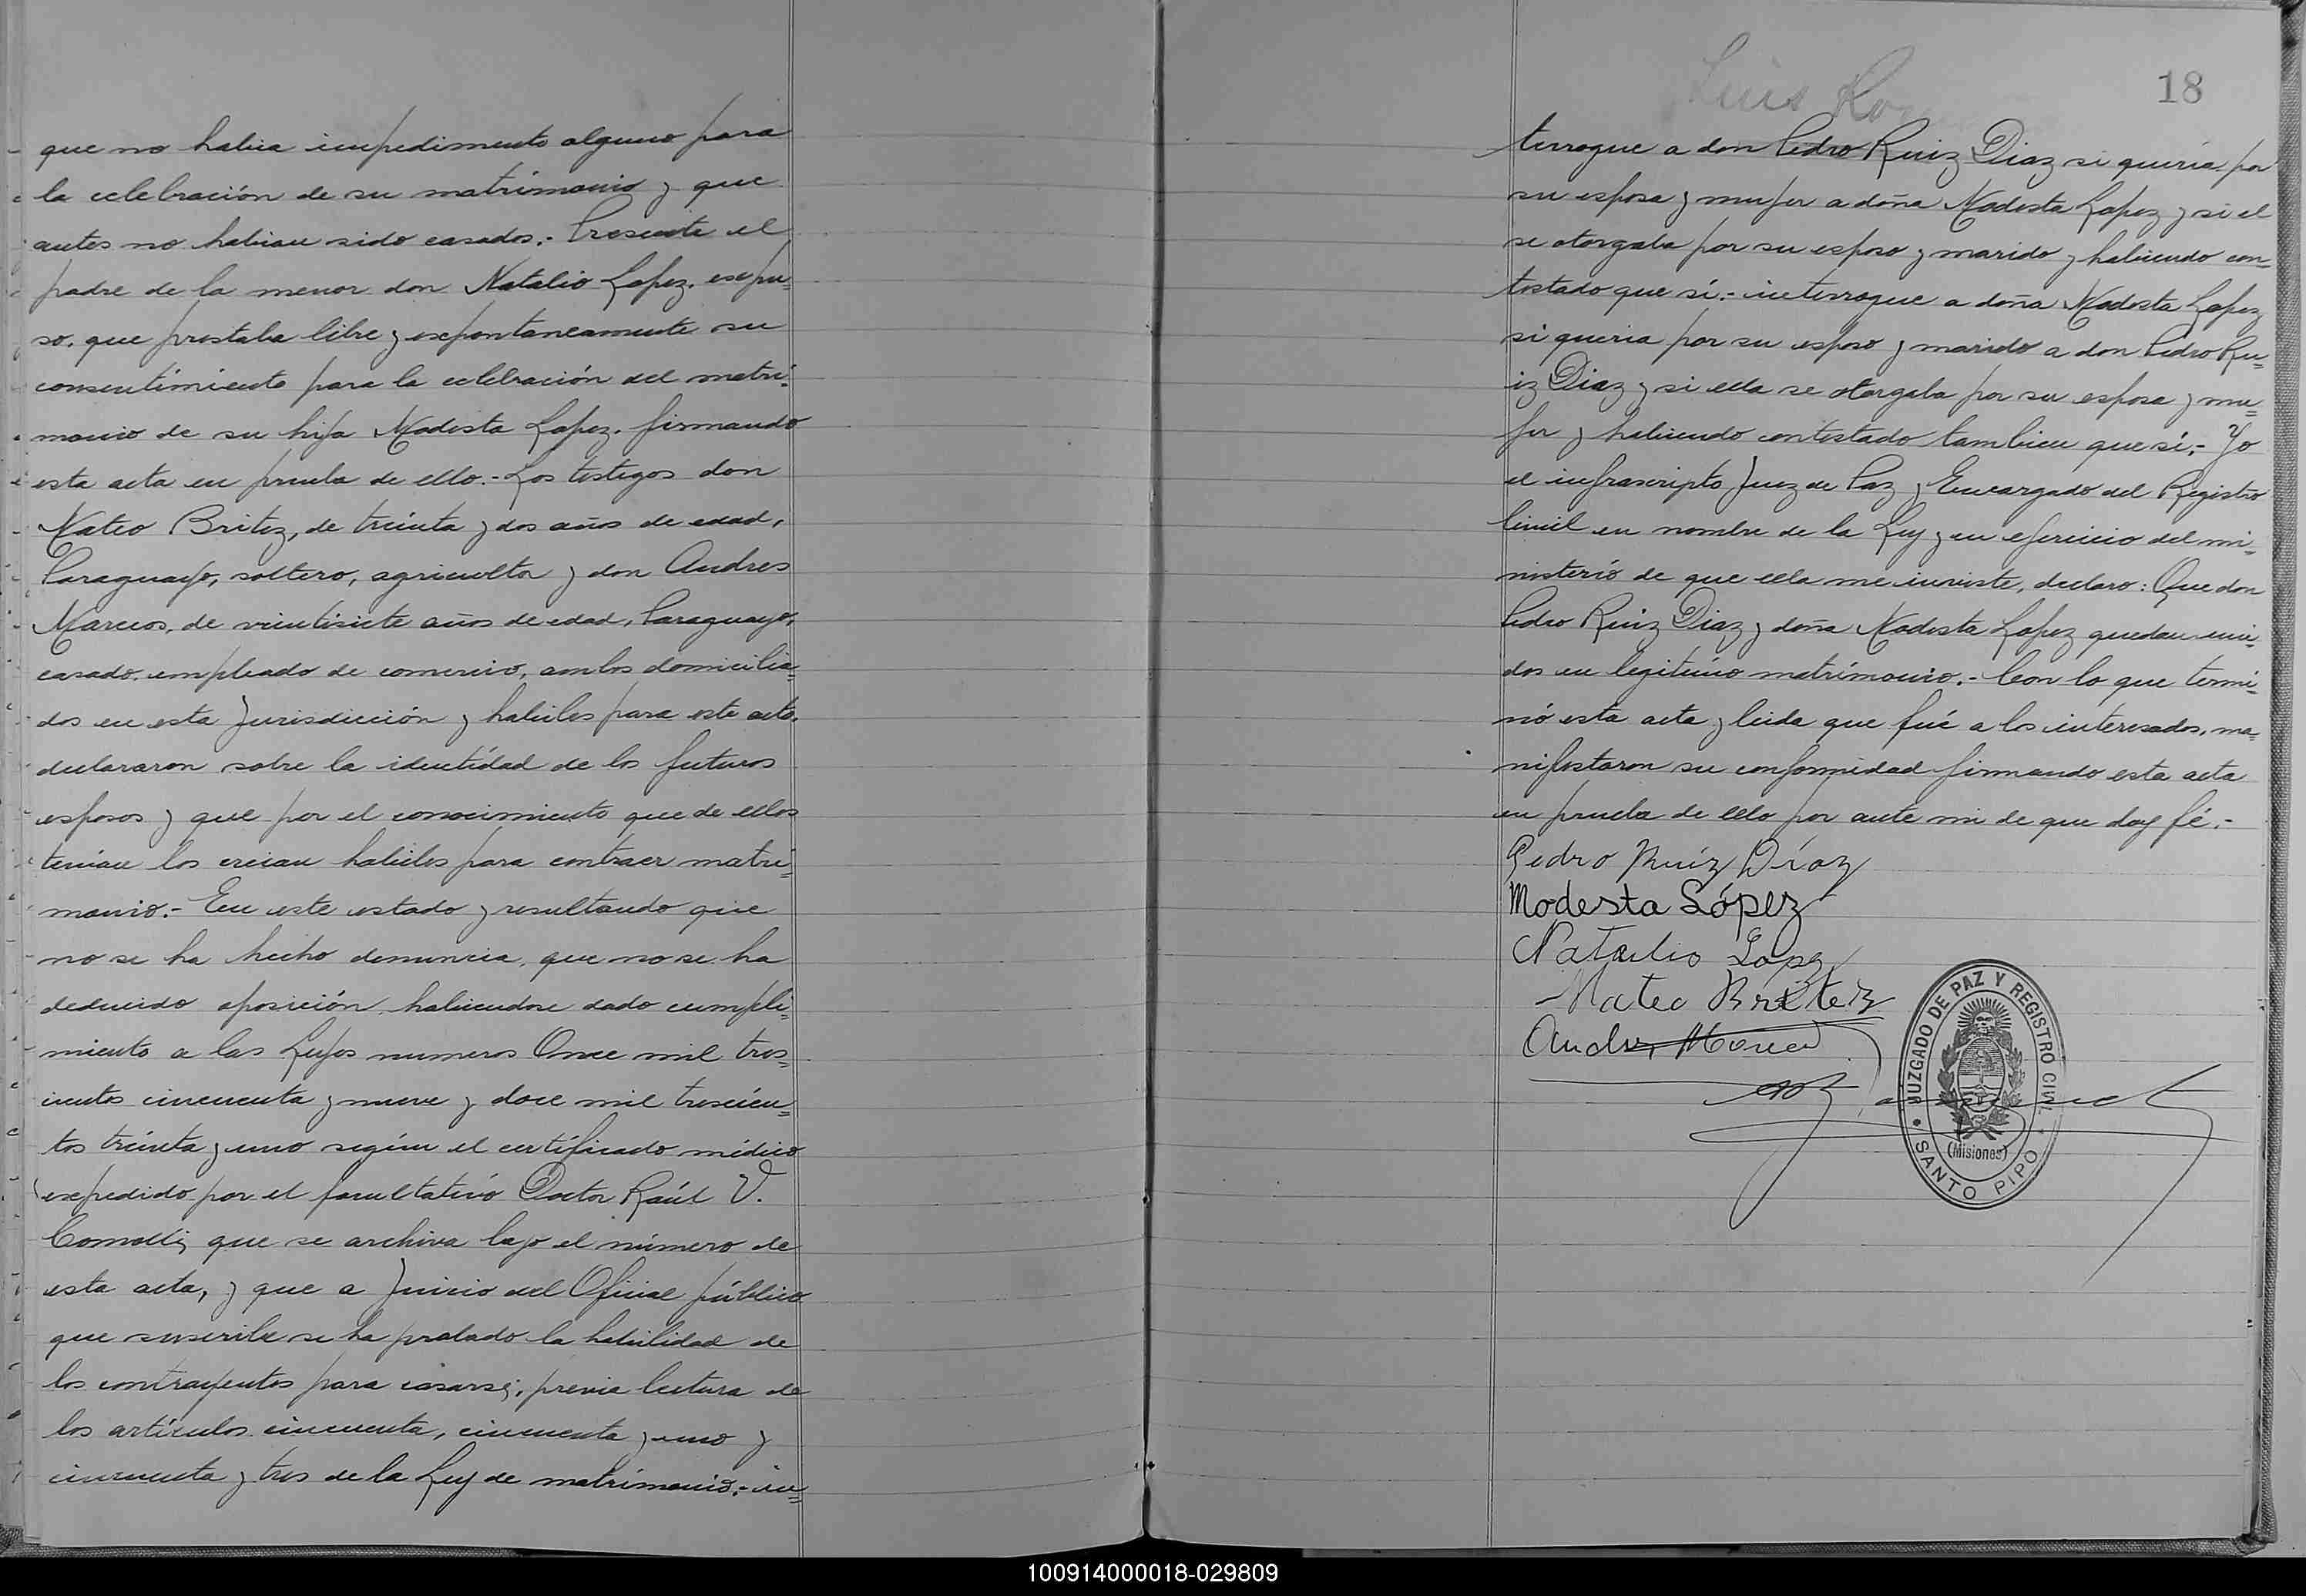 que no habia impedimento alguno para
la celebración de su matrimonio y que
antes no habian sido casados.- Presente el
padre de la menor don Natalio Lopez. expu=
so. que prestaba libre y expontaneamente su
consentimiento para la celebración del matri=
monio de su hija Modesta Lopez. firmando
esta acta en prueba de ello.- Los testigos don
Mateo Britez, de treinta y dos años de edad,
Paraguayo, soltero, agricultor y don Andres
Marcos, de vientisiete años de edad, Paraguayo,
casado. empleado de comercio, ambos domicilia=
dos en esta Jurisdicción y habiles para este acto.
declararon sobre la identidad de los futuros
esposos y que por el conocimiento que de ellos
tenian los creian habiles para contraer matri=
monio.- En este estado y resultando que
no se ha hecho denuncia, que no se ha
deducido oposición, habiendose dado cumpli=
miento a las Leyes numeros Once mil tres=
cientos cincuenta y nueve y doce mil trescien=
tos treinta y uno según el certificado médico
expedido por el facultativo Doctor Raúl V.
Comolli, que se archiva bajo el número de
esta acta, y que a Juicio del Oficial público
que suscribe se ha probado la habilidad de
los contrayentes para casarse, previa lectura de
los artículos cincuenta, cincuenta y uno y
cincuenta y tres de la Ley de matrimonio.- in=
Luis Ro
18
terrogue a don Pedro Ruiz Diaz si queria por
su esposa y mujer a doña Modesta Lopez y si el
se otorgaba por su esposo y marido y habiendo con=
testado que sí.- interrogue a doña Modesta Lopez
si queria por su esposo y marido a don Pedro Ru=
iz Diaz y si ella se otorgaba por su esposa y mu=
jer y habiendo contestado tambien que sí.- Yo
el infrascripto Juez de Paz y Encargado del Registro
Civil en nombre de la Ley y en ejercicio del mi=
nisterio de que ella me inviste, declaro: Que don
Pedro Ruiz Diaz y doña Modesta Lopez quedan uni=
dos en legitimo matrimonio.- Con lo que termi=
nó esta acta y leida que fué a los interesados, ma=
nifestaron su conformidad firmando esta acta
en prueba de ello por ante mi de que doy fé.-
Pedro Ruíz Díaz
Modesta López
Natalio Lopez
Mateo Britez
Andres
JUZGADO DE PAZ Y REGISTRO CIVIL
(Misiones)
SANTO PIPO
100914000018-029809